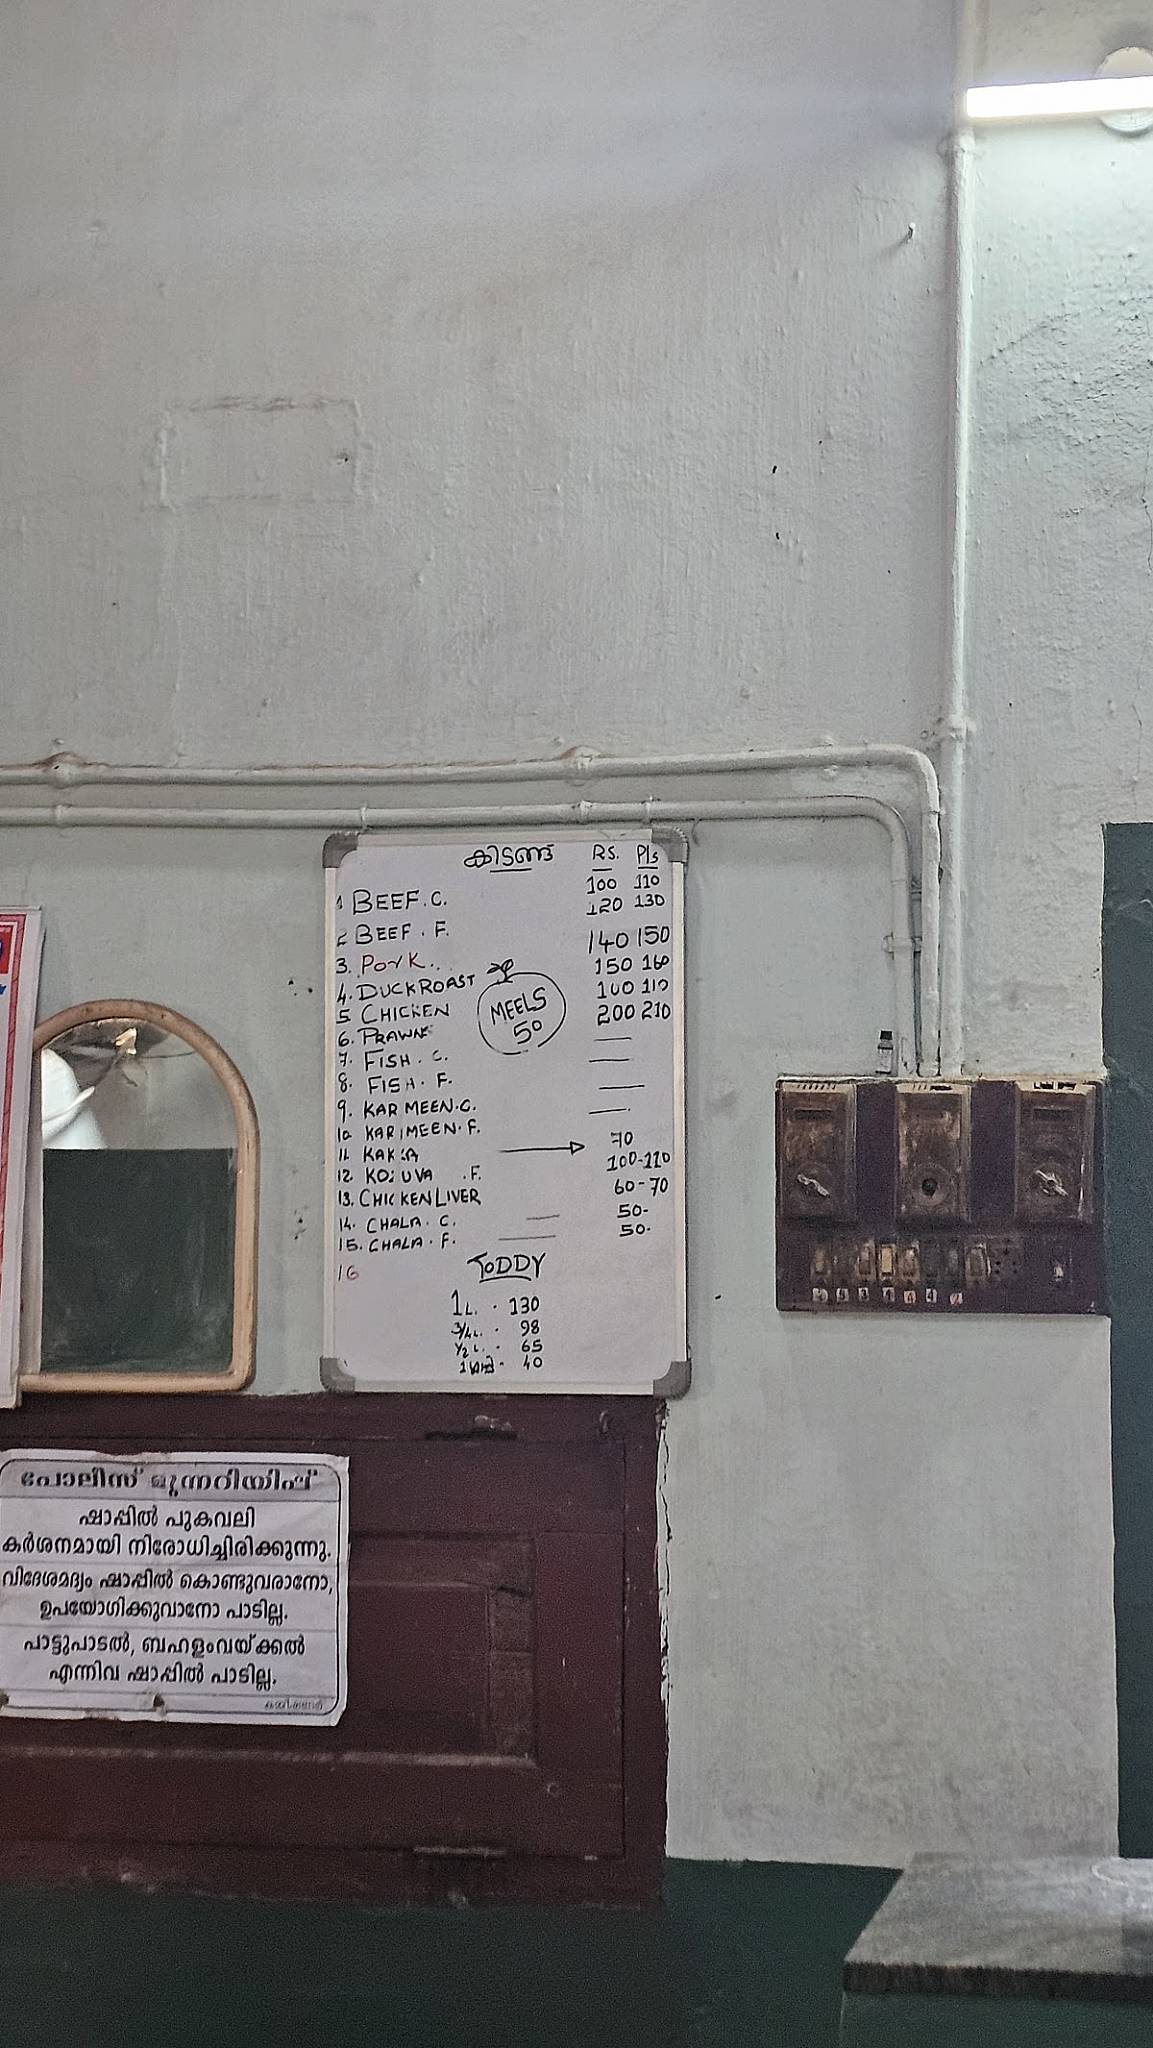 കിടങ്ങ് Rs. Pls
1 BEEF. C. 100 110
2 BEEF. F. 120 130
3. Pork.. 140 150
4. DUCKROAST 150 160
5 CHICKEN 100 110
6. PRAWNS 200 210
MEELS
50
7. FISH. C. —
8. FISH. F. —
9. KARMEEN. C. —
10 KARIMEEN. F. —
11. KAKKA → 70
12 KOZUVA .F. 100-110
13. CHICKEN LIVER 60-70
14. CHALA. C. — 50-
15. CHALA. F. — 50-
16
TODDY
1 L. - 130
3/4 L. - 98
1/2 L. - 65
1 - 40
പോലീസ് മുന്നറിയിപ്പ്
ഷാപ്പിൽ പുകവലി
കർശനമായി നിരോധിച്ചിരിക്കുന്നു.
വിദേശമദ്യം ഷാപ്പിൽ കൊണ്ടുവരാനോ,
ഉപയോഗിക്കുവാനോ പാടില്ല.
പാട്ടുപാടൽ, ബഹളംവയ്ക്കൽ
എന്നിവ ഷാപ്പിൽ പാടില്ല.